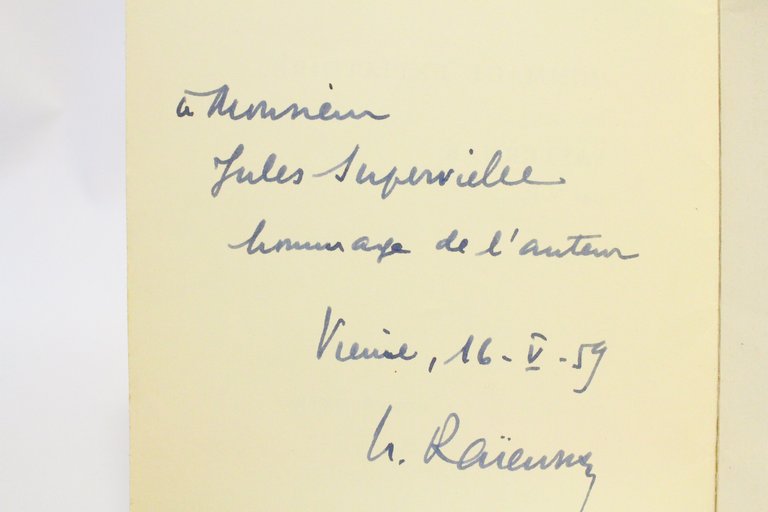 à Monsieur
Jules Supervielle
hommage de l'auteur
Vienne, 16-V-59